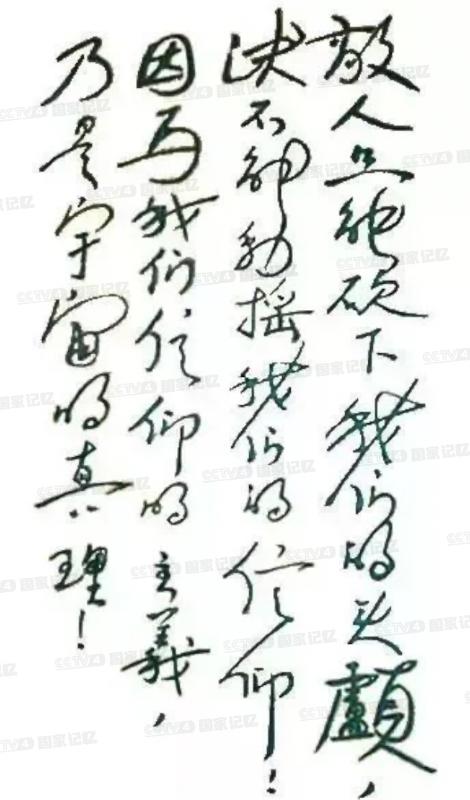 敵人只能砍下我们的头顱,
决不能动摇我们的信仰!
因为我们信仰的主義,
乃是宇宙的真理!
CCTV4 国家记忆